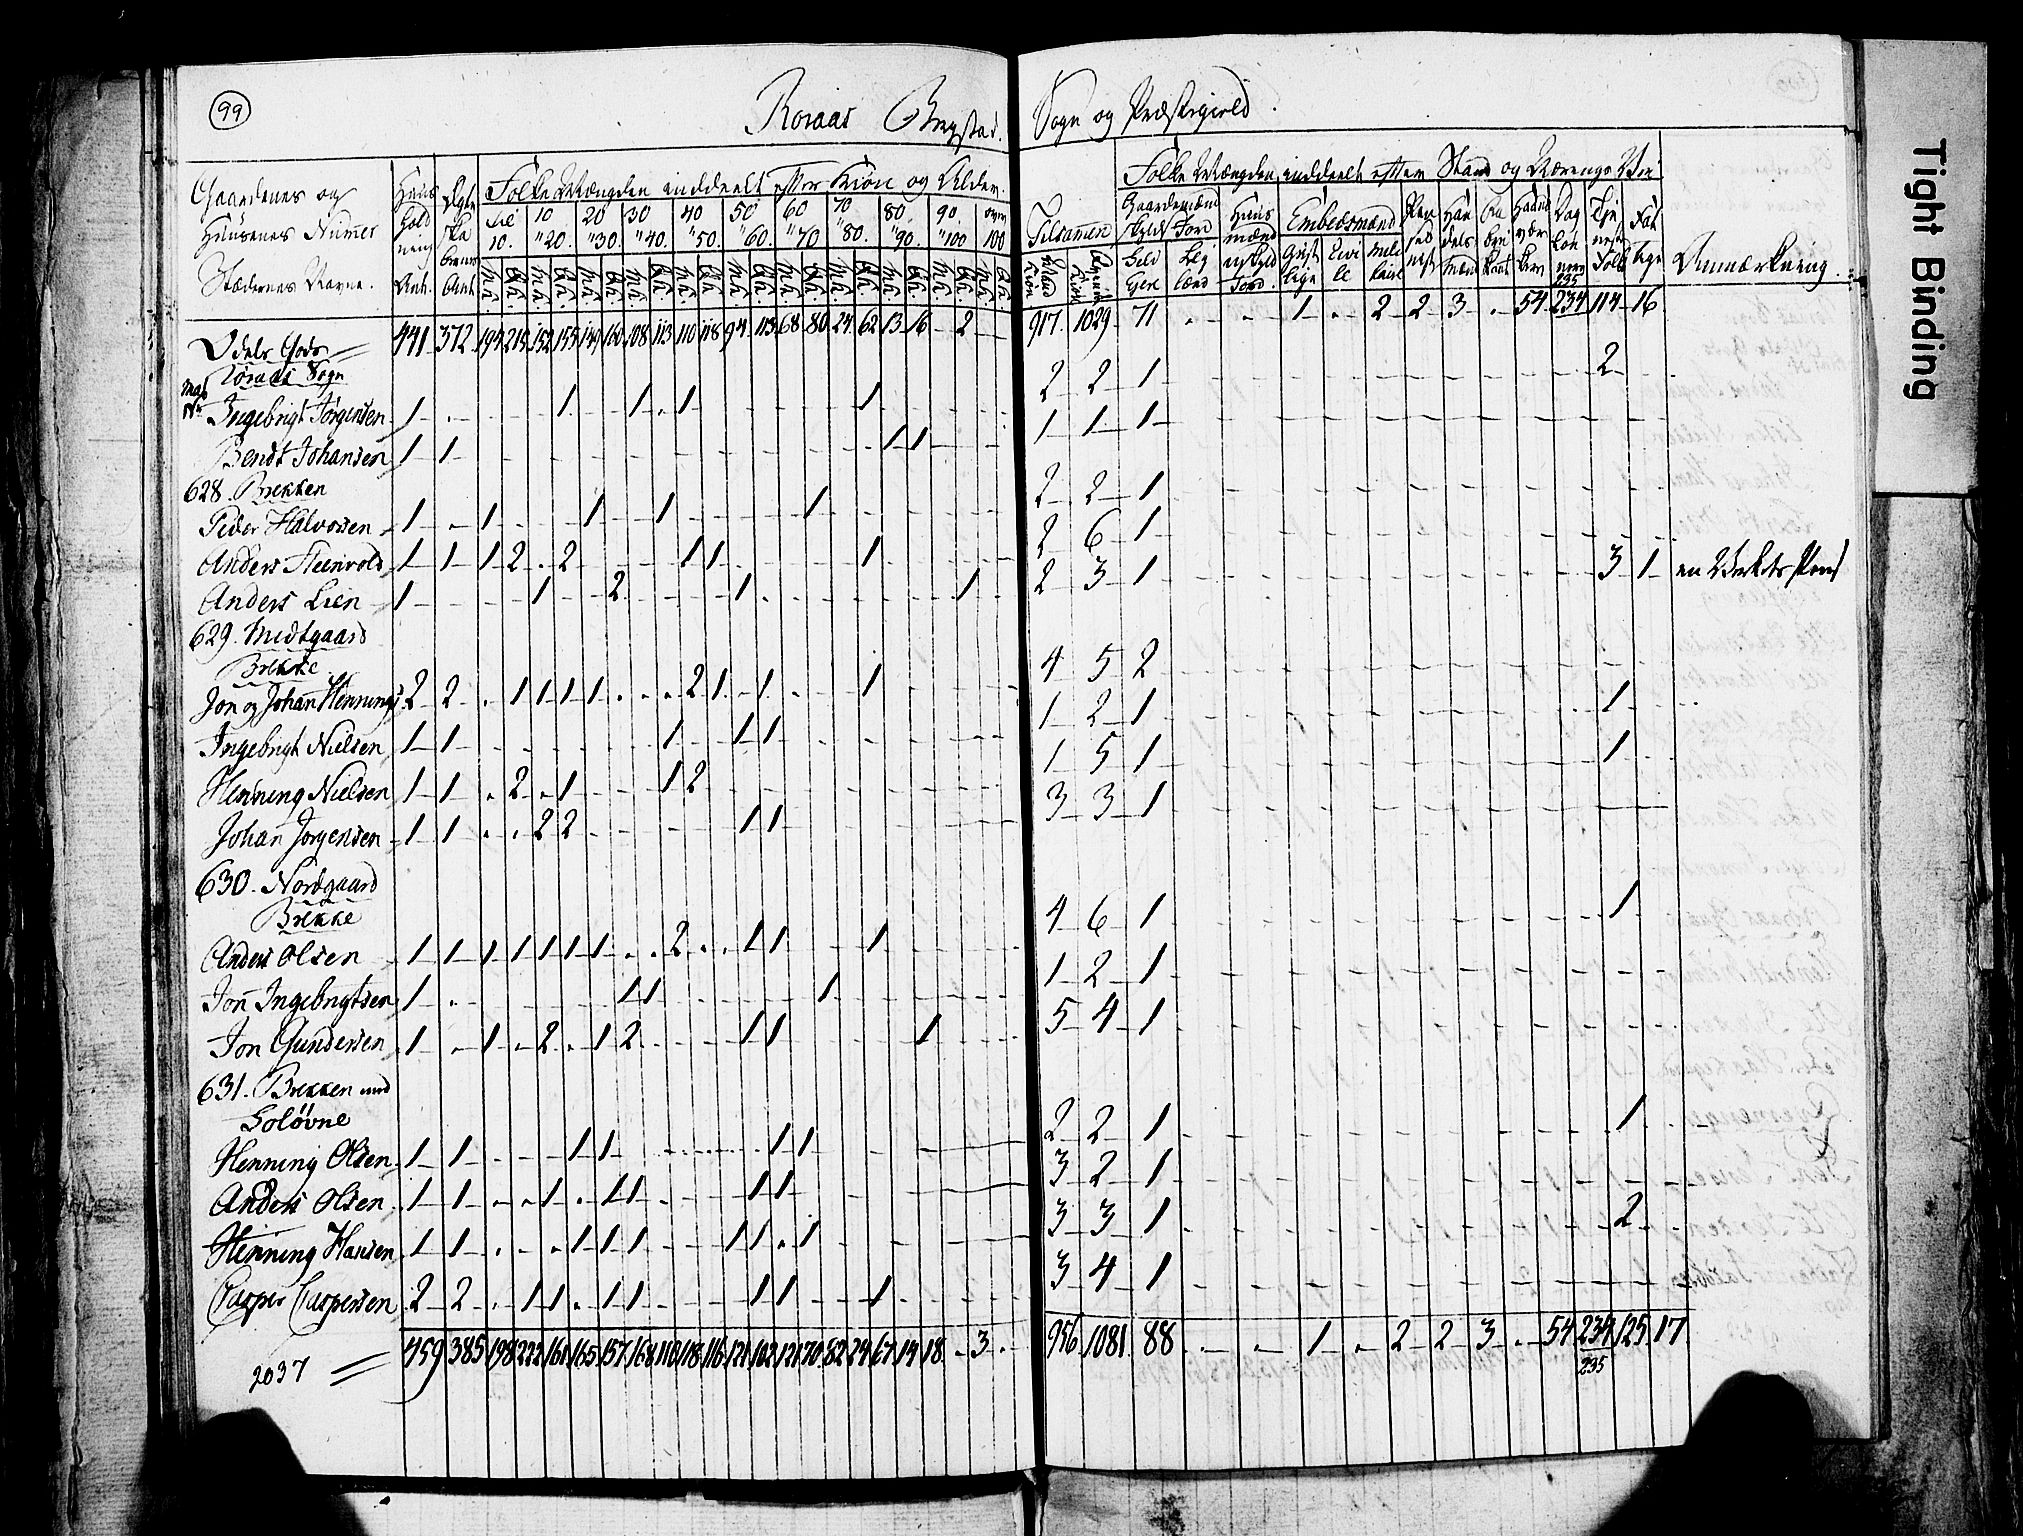 99
Roraas Bergstad. Sogn og Præstegield.
Gaardenes og Hüüsenes Numer Stædernes Navne. Huus hold ning Ant. Ægte ska ber Ant. Folke Mængden inddeelt efter Kiøn og Alder.
til 10. 10 " 20. 20 " 30. 30 " 40. 40 " 50. 50 " 60. 60 " 70 70 " 80. 80 " 90. 90 " 100 over 100
Tilsamen Mand Kiøn Qvinde Kiøn Folke Mængden inddeelt efter Stand og Nærings Vei
Gaardemænd Jord Selv Eyere Leylænd Huus mænd Jord Embedsmænd Geistlige Civile Militaire Pensionist Handels Mænd Haandværkere Dag Lønnere Tjenestefolk Fattige Anmærkning.
Odels Gods 441 372 194 215 152 155 149 160 108 113 110 118 94 113 68 80 24 62 13 16 - 2 - 917 1029 71 1 2 2 3 54 235 234 114 16
Röraas Sogn
Ma No Ingebrigt Jörgensen 1 - 1 1 1 1 2 2 1 2
Bendt Johansen 1 1 1 1 1 1 1
628. Brekken
Peder Halvorsen 1 - 1 1 1 1 2 2 1
Anders Steenvold 1 1 1 2 2 1 1 1 2 6 1
Anders Lien 1 1 2 1 1 2 3 1 3 1 en Værkets Pens
629. Midtgaard
Brekke
Jon og Johan Hennings 2 2 1 1 1 1 2 1 1 1 4 5 2
Ingebrigt Nielsen 1 1 1 1 1 1 2 1 1
Henning Nielsen 1 1 2 1 1 2 1 5 1 1
Johan Jorgensen 1 1 2 2 1 1 3 3 1
630. Nordgaard
Brekke
Anders Olsen 1 1 1 1 1 1 1 2 1 1 1 4 6 1 1
Jon Ingebrigtsen 1 - 1 1 1 1 2 1
Jon Gundersen 1 - 1 2 1 2 1 1 1 5 4 1
631. Brekken med
Soløvne
Henning Olsen 1 1 1 1 1 1 2 2 1 1
Anders Olsen 1 1 1 1 1 1 1 3 2 1
Henning Hansen 1 1 1 1 1 1 1 1 3 3 1 2
Casper Caspersen 2 2 1 1 1 1 1 1 1 3 4 1
459 385 198 222 161 165 157 168 110 118 116 121 102 121 70 82 24 67 14 18 - 3 - 956 1081 88 1 2 2 3 54 234 125 17
2037 235
Tight Binding